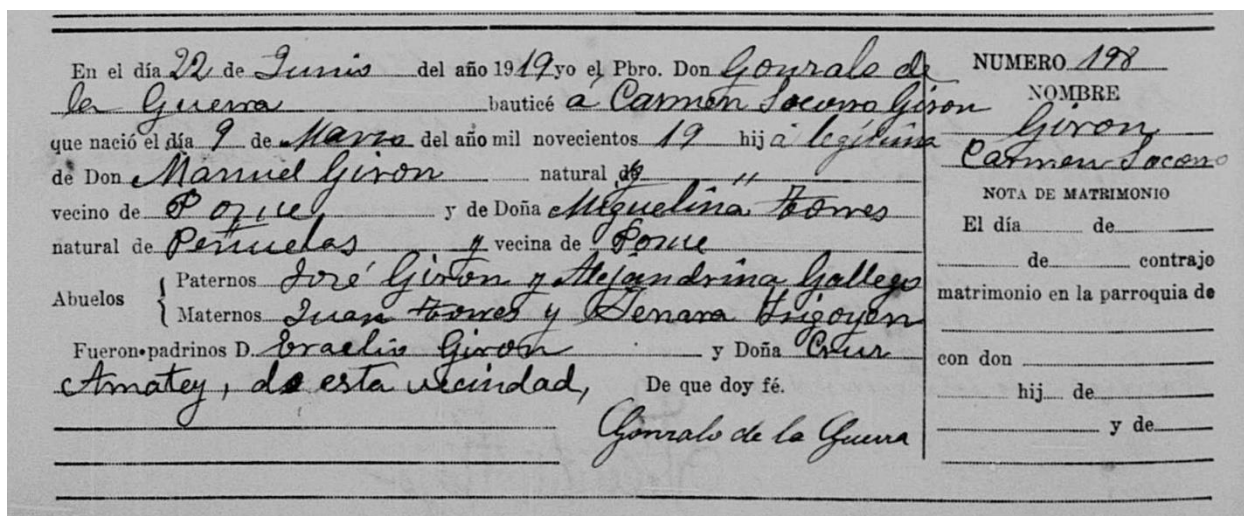 En el día 22 de Junio del año 1919 yo el Pbro. Don Gonzalo de
la Guerra bauticé á Carmen Socorro Giron
que nació el día 9 de Marzo del año mil novecientos 19 hij a legítima
de Don Manuel Giron natural de "
vecino de Ponce, y de Doña Miguelina Torres
natural de Peñuelas y vecina de Ponce
Abuelos
Paternos José Giron y Alejandrina Gallego
Maternos Juan Torres y Genara Irigoyen
Fueron padrinos D. Eraelio Giron y Doña Cruz
Amatey, de esta vecindad, De que doy fé.
Gonzalo de la Guerra
NUMERO 198
NOMBRE
Giron
Carmen Socorro
NOTA DE MATRIMONIO
El día de
de contrajo
matrimonio en la parroquia de
con don
hij de
y de